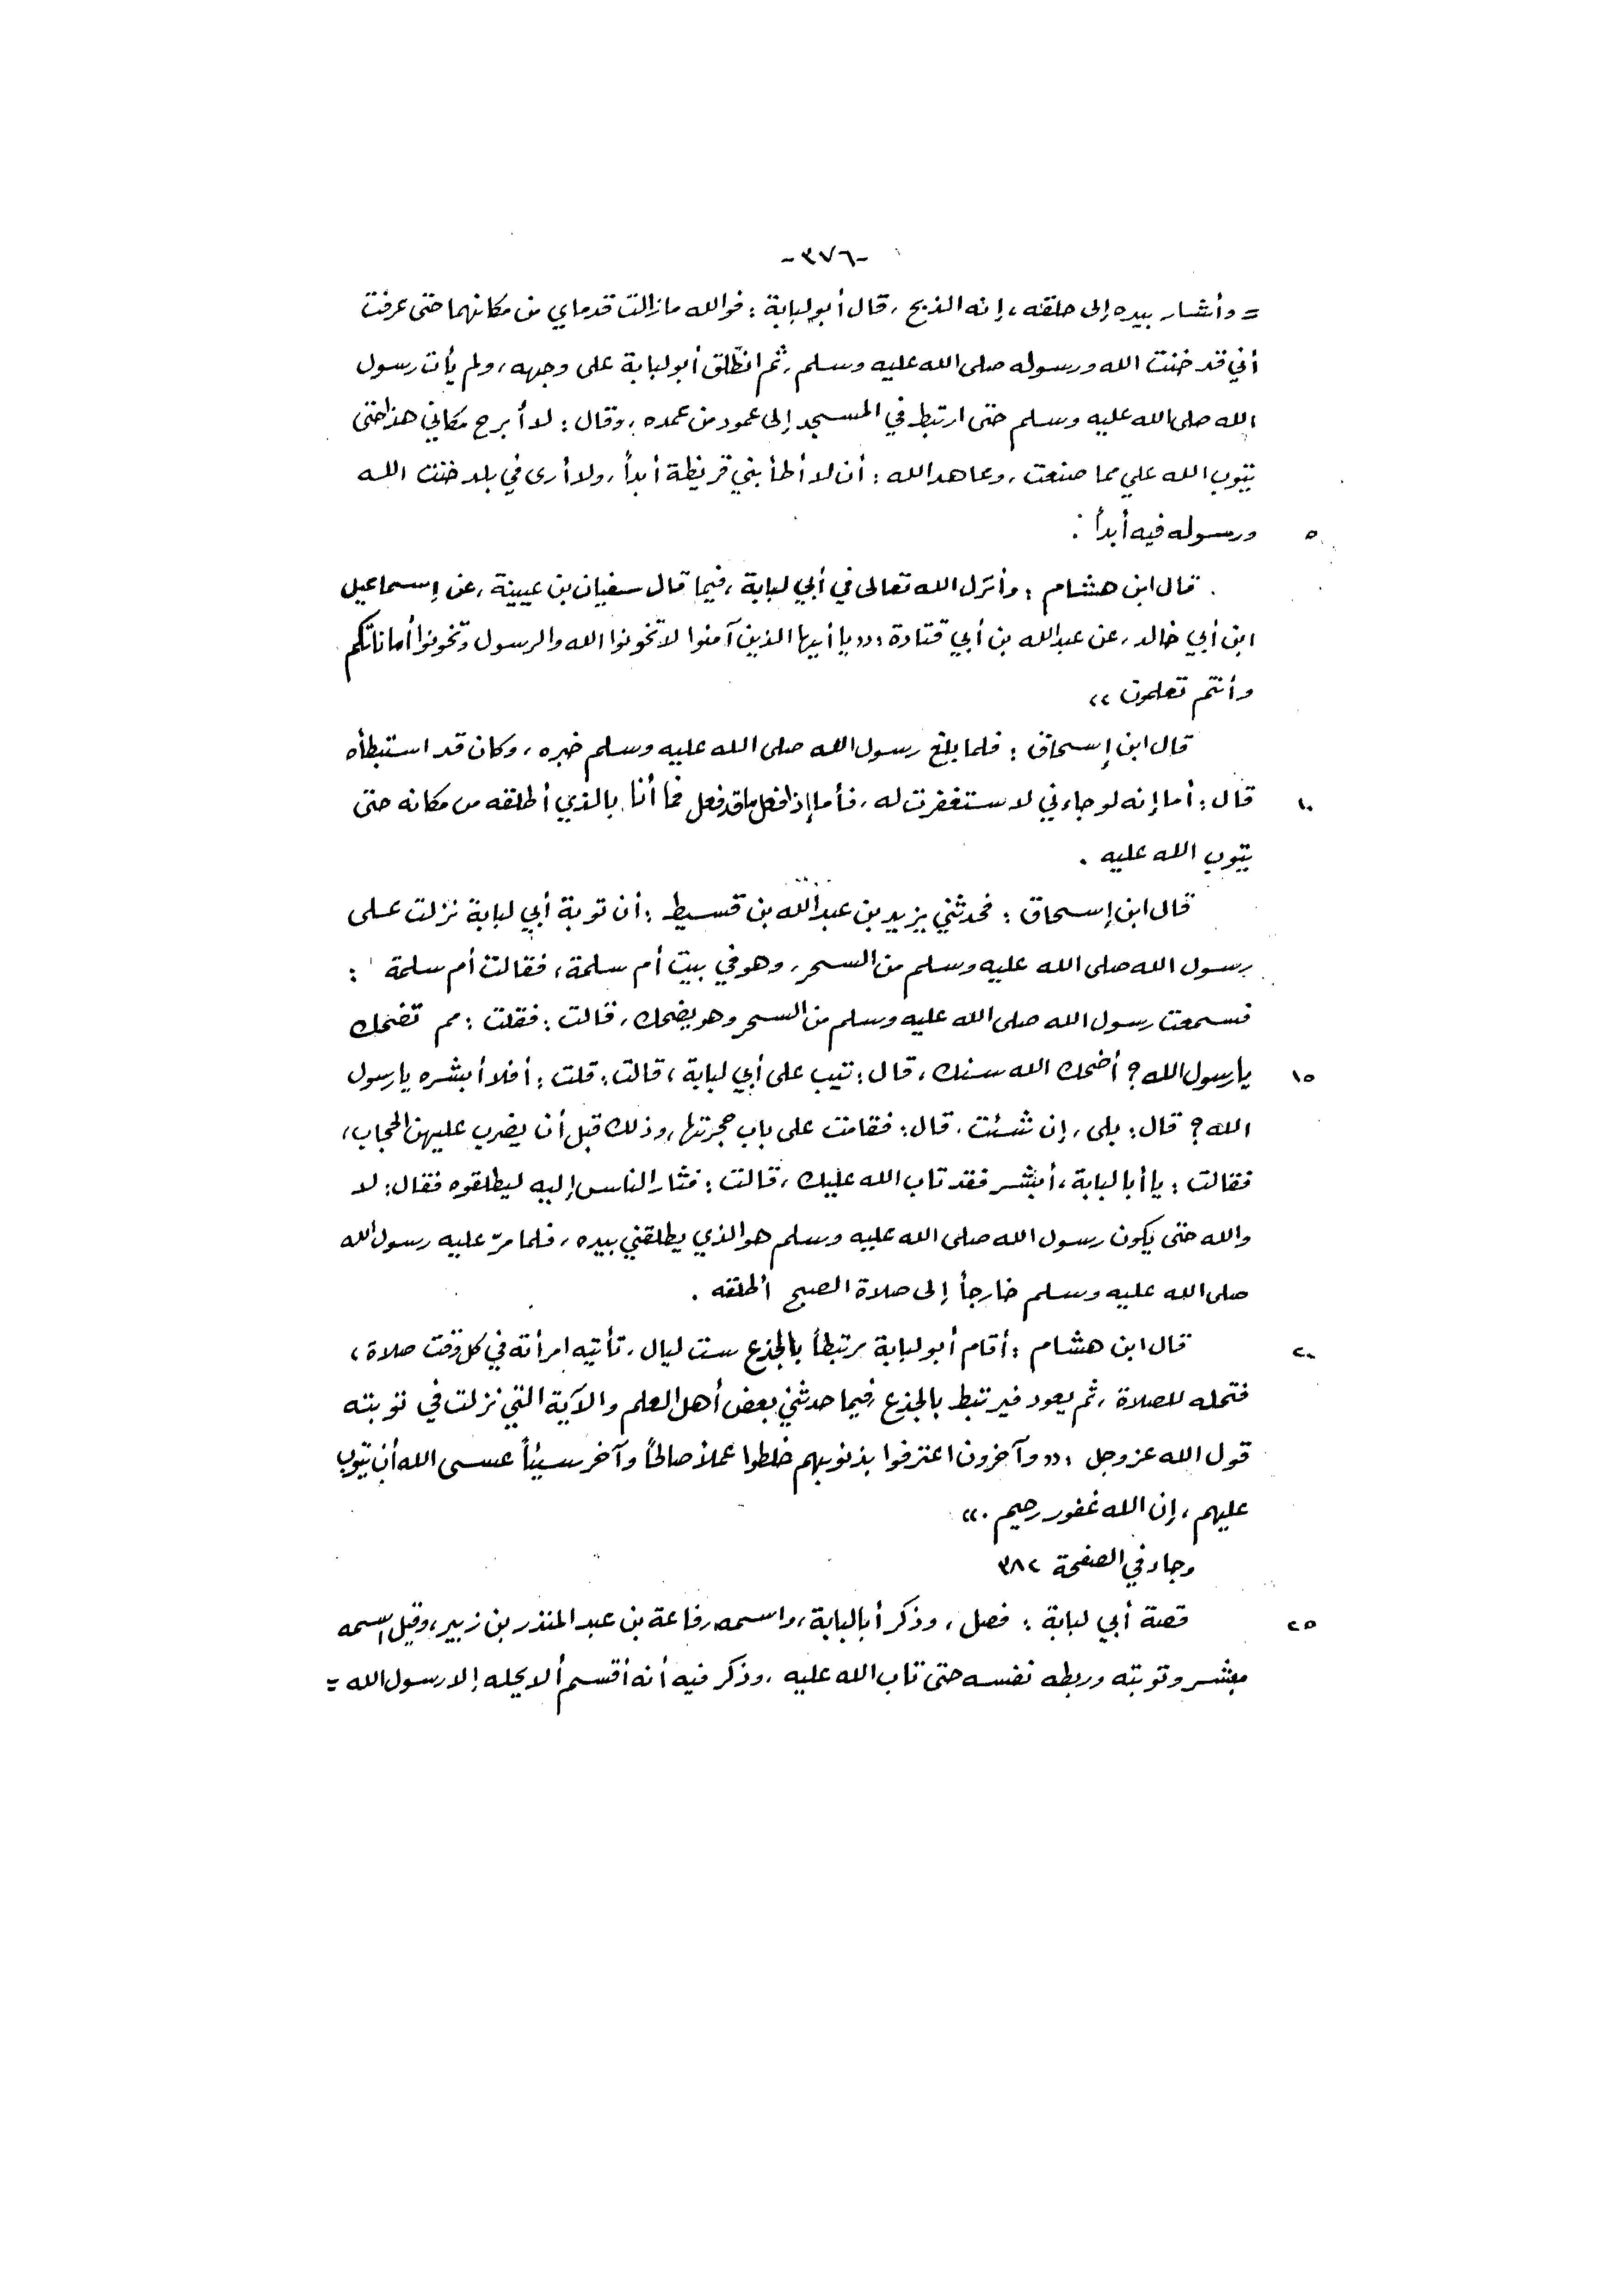 -٣٧٦-
= وأشار بيده إلى حلقه، إنه الذبح، قال أبولبابة: فوالله مازالت قدماي من مكانهما حتى عرفت
أني قد خنت الله ورسوله صلى الله عليه وسلم، ثم انطلق أبولبابة على وجهه، ولم يأت رسول
الله صلى الله عليه وسلم حتى ارتبط في المسجد إلى عمود من عمده، وقال: لا أبرح مكاني هذا حتى
يتوب الله علي مما صنعت، وعاهد الله: أن لا أطأ بني قريظة أبداً، ولا أرى في بلد خنت الله
ورسوله فيه أبداً. ٥
قال ابن هشام: وأنزل الله تعالى في أبي لبابة، فيما قال سفيان بن عيينة، عن إسماعيل
ابن أبي خالد، عن عبدالله بن أبي قتادة: «يا أيها الذين آمنوا لا تخونوا الله والرسول وتخونوا أماناتكم
وأنتم تعلمون»
قال ابن إسحاق: فلما بلغ رسول الله صلى الله عليه وسلم خبره، وكان قد استبطأه
قال: أما إنه لو جاءني لاستغفرت له، فأما إذا فعل ما قد فعل فما أنا بالذي أطلقه من مكانه حتى ١٠
يتوب الله عليه.
قال ابن إسحاق: فحدثني يزيد بن عبدالله بن قسيط: أن توبة أبي لبابة نزلت على
رسول الله صلى الله عليه وسلم من السحر، وهو في بيت أم سلمة، فقالت أم سلمة:
فسمعت رسول الله صلى الله عليه وسلم من السحر وهو يضحك، قالت: فقلت: مم تضحك
يا رسول الله؟ أضحك الله سنك، قال: تيب على أبي لبابة، قالت: قلت: أفلا أبشره يا رسول ١٥
الله؟ قال: بلى، إن شئت، قال: فقامت على باب حجرتها، وذلك قبل أن يضرب عليهن الحجاب،
فقالت: يا أبا لبابة، أبشر فقد تاب الله عليك، قالت: فثار الناس إليه ليطلقوه فقال: لا
والله حتى يكون رسول الله صلى الله عليه وسلم هو الذي يطلقني بيده، فلما مرّ عليه رسول الله
صلى الله عليه وسلم خارجاً إلى صلاة الصبح أطلقه.
قال ابن هشام: أقام أبولبابة مرتبطاً بالجذع ست ليال، تأتيه امرأته في كل وقت صلاة، ٢٠
فتحله للصلاة، ثم يعود فيرتبط بالجذع، فيما حدثني بعض أهل العلم والآية التي نزلت في توبته
قول الله عز وجل: «وآخرون اعترفوا بذنوبهم خلطوا عملاً صالحاً وآخر سيئاً عسى الله أن يتوب
عليهم، إن الله غفور رحيم.»
وجاء في الصفحة ٣٨٢
قصة أبي لبابة: فصل، وذكر أبا لبابة، واسمه رفاعة بن عبد المنذر بن زبير، وقيل اسمه ٢٥
مبشر وتوبته وربطه نفسه حتى تاب الله عليه، وذكر فيه أنه أقسم ألا يحله إلا رسول الله =